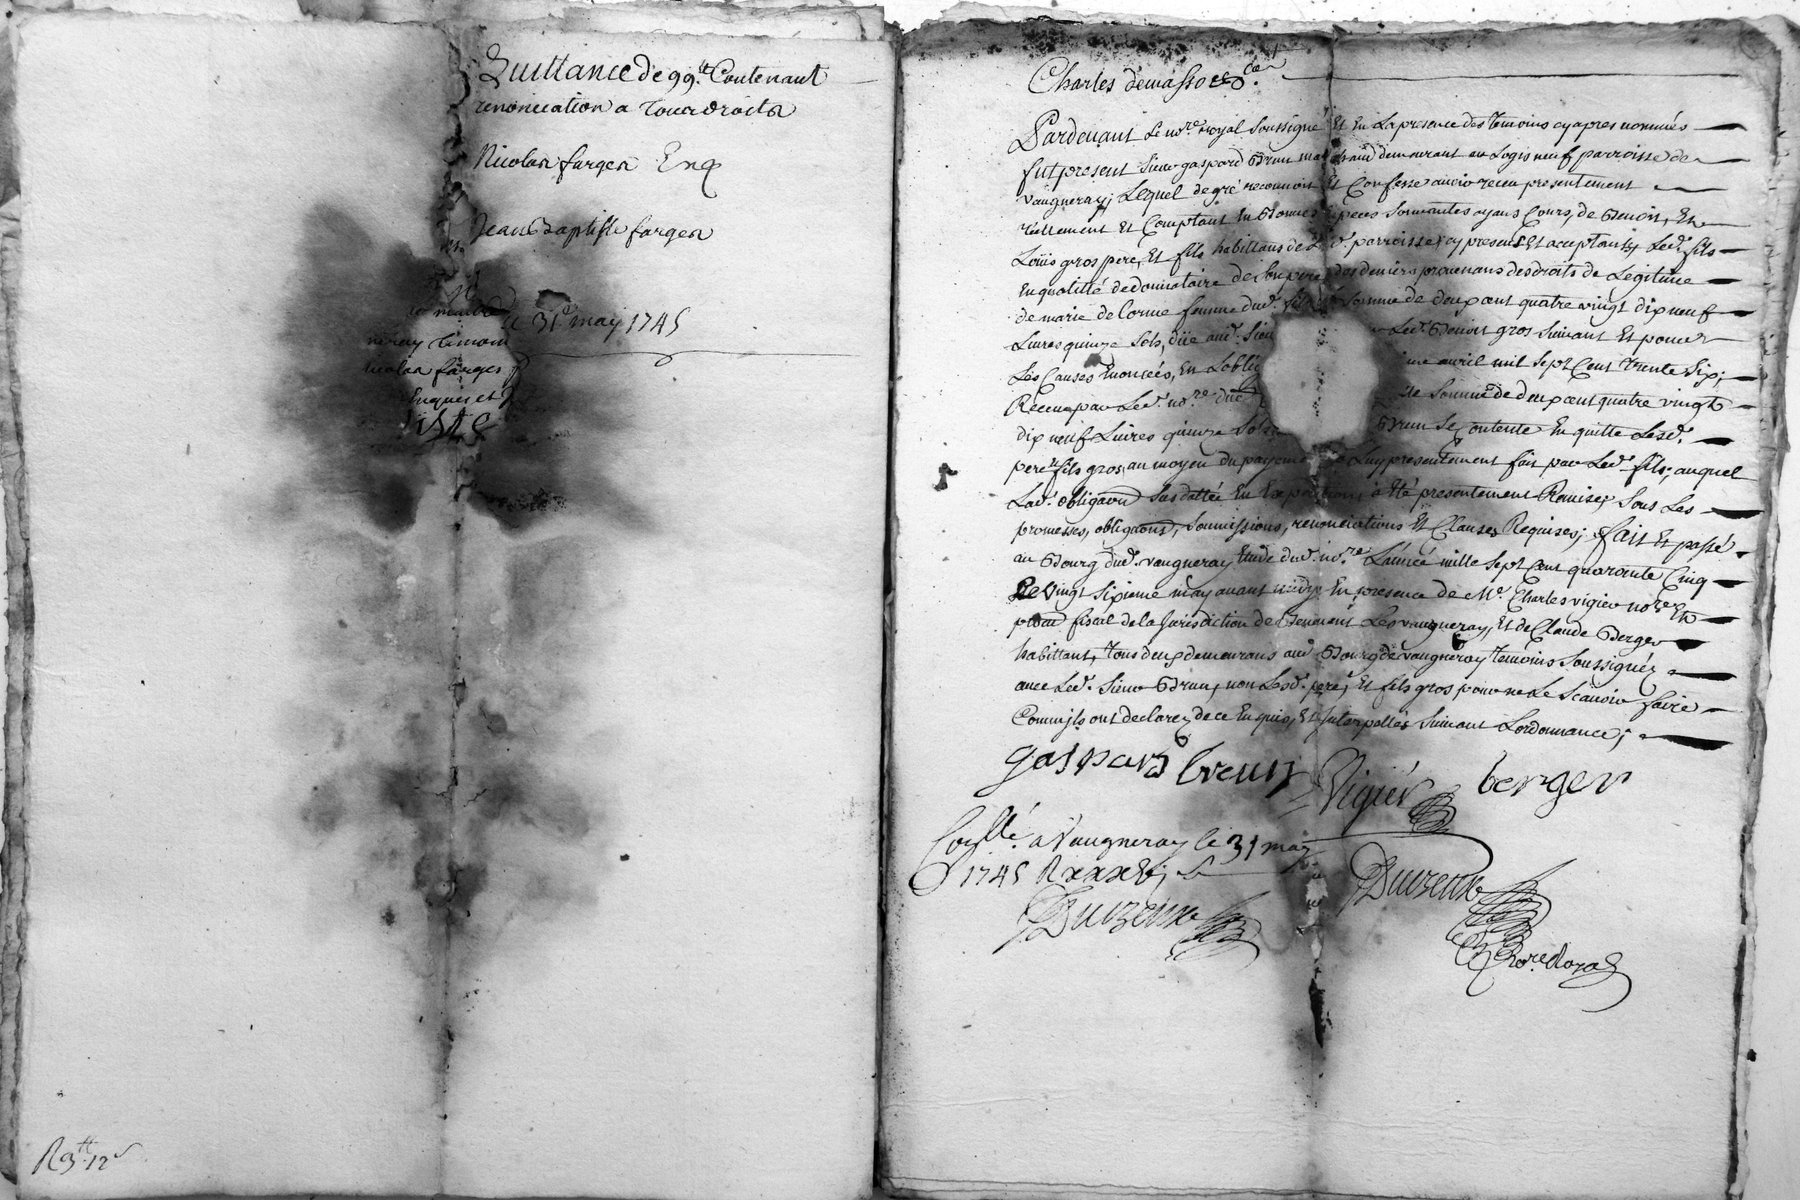 Quittance de 99.tt Contenant
renonciation a tous droits
Nicolas farges Enq
Jean Baptiste farges
le 31e may 1745
neray temoin
nicolas farges
Enquis et
iste
R 3tt 12s
Charles demasso &c.
Pardevant Le nore royal Soussigné Et En La presence des temoins cy apres nommés
fut present Sieur gaspard Brun demeurant au Logis neuf parroisse de
vaugneray, Lequel de gré reconnoit Et Confesse avoir receu presentement
réellement Et Comptant En Bonnes Especes Sonnantes ayans Cours, de Benoit, Et
Loüis gros pere, Et fils habittans de parroisse cy presents Et aceptants, Led. fils
En qualitté de donnataire de Son pere des deniers provenans des droits de Legitime
de marie de lorme femme dud. fils Somme de deux cent quatre vingt dix neuf
Livres quinze Sols, düe aud. Sieur Led. Benoit gros Suivant Et pour
Les Causes Enoncées, En Lobli avril mil Sept Cent trente Six;
Receue par Led. nore due Somme de deux cent quatre vingt
dix neuf Livres quinze Sols Brun Se Contente En quitte Lesd.
pere Et fils gros, au moyen du payement a Luy presentement fait par Led. fils; auquel
Lad. obligaon Susdattée En Expeditions a Eté presentement Remise, Sous Les
promesses, obligaons, Soumissions, renonciations Et Clauses Requises; fait Et passé
au Bourg dud. vaugneray Etude dud. nore L'année mille Sept Cent quarante Cinq
Le Vingt Sixieme may avant midy En presence de Me. Charles vigier nore Et
procur fiscal de la Jurisdiction de Benevent Les vaugneray, Et de Claude Berger
habittant, tous deux demeurans aud. Bourg de vaugneray temoins Soussignés
avec Led. Sieur Brun, non Lesd. pere, Et fils gros pour ne Le Scavoir faire
Comm'ils ont declaré, de ce Enquis, Et Interpellés Suivant Lordonnance;
gaspard brun Vigier berger
Conllé a Vaugneray le 31 may
1745 R
Duizeme Duizeme
Nore Royal